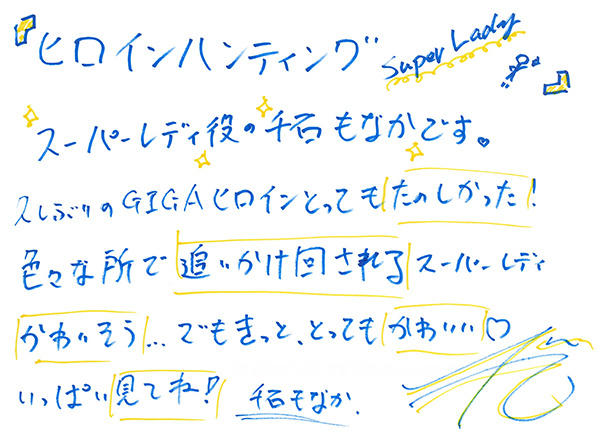 『ヒロインハンティング Super Lady』
スーパーレディ役の千石もなかです。
久しぶりのGIGAヒロインとってもたのしかった!
色々な所で追いかけ回されるスーパーレディ
かわいそう...でもきっと、とってもかわいい♡
いっぱい見てね! 千石もなか.